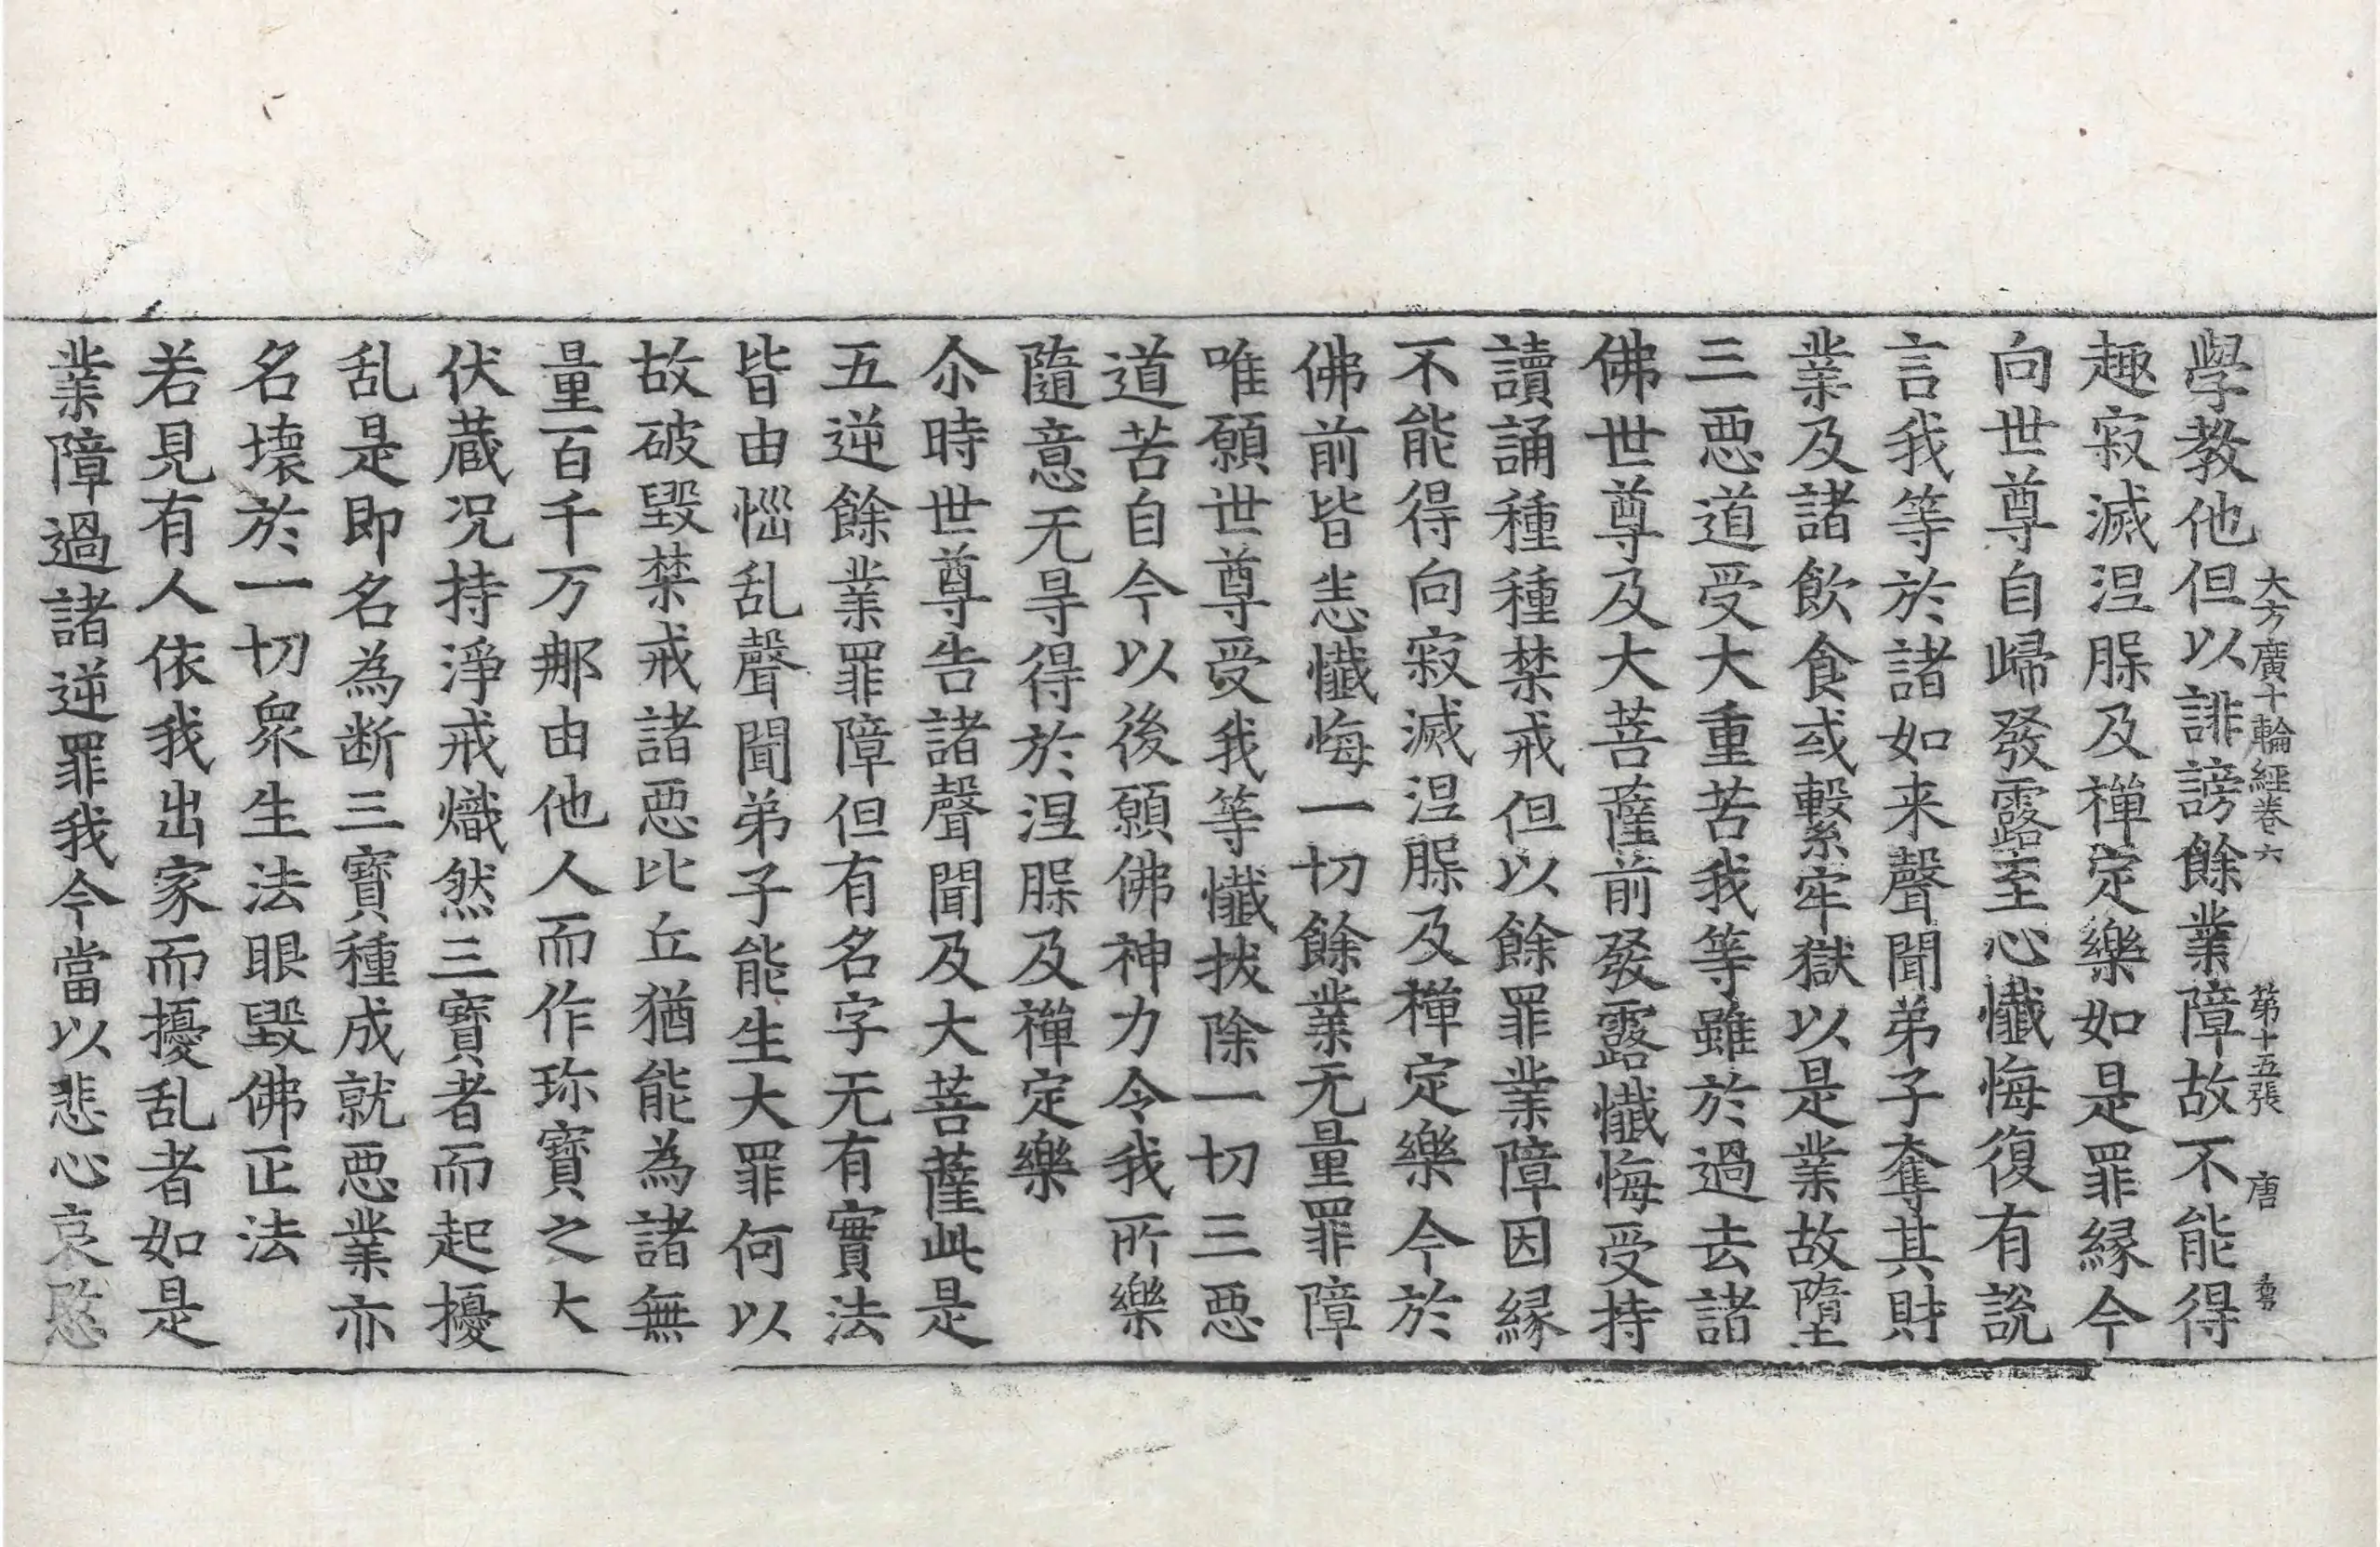 大方廣十輪經卷六　第十五張　唐
學教他但以誹謗餘業障故不能得
趣寂滅涅槃及禪定樂如是罪縁今
向世尊自歸發露至心懺悔復有說
言我等於諸如来聲聞弟子奪其財
業及諸飲食或繫牢獄以是業故墮
三惡道受大重苦我等雖於過去諸
佛世尊及大菩薩前發露懺悔受持
讀誦種種禁戒但以餘罪業障因縁
不能得向寂滅涅槃及禪定樂今於
佛前皆悉懺悔一切餘業无量罪障
唯願世尊受我等懺拔除一切三惡
道苦自今以後願佛神力令我所樂
隨意无㝵得於涅槃及禪定樂
尒時世尊告諸聲聞及大菩薩此是
五逆餘業罪障但有名字无有實法
皆由惱乱聲聞弟子能生大罪何以
故破毀禁戒諸惡比丘猶能為諸無
量百千万那由他人而作珎寶之大
伏蔵况持淨戒熾然三寶者而起擾
乱是即名為断三寶種成就惡業亦
名壞於一切衆生法眼毀佛正法
若見有人依我出家而擾乱者如是
業障過諸逆罪我今當以悲心哀愍